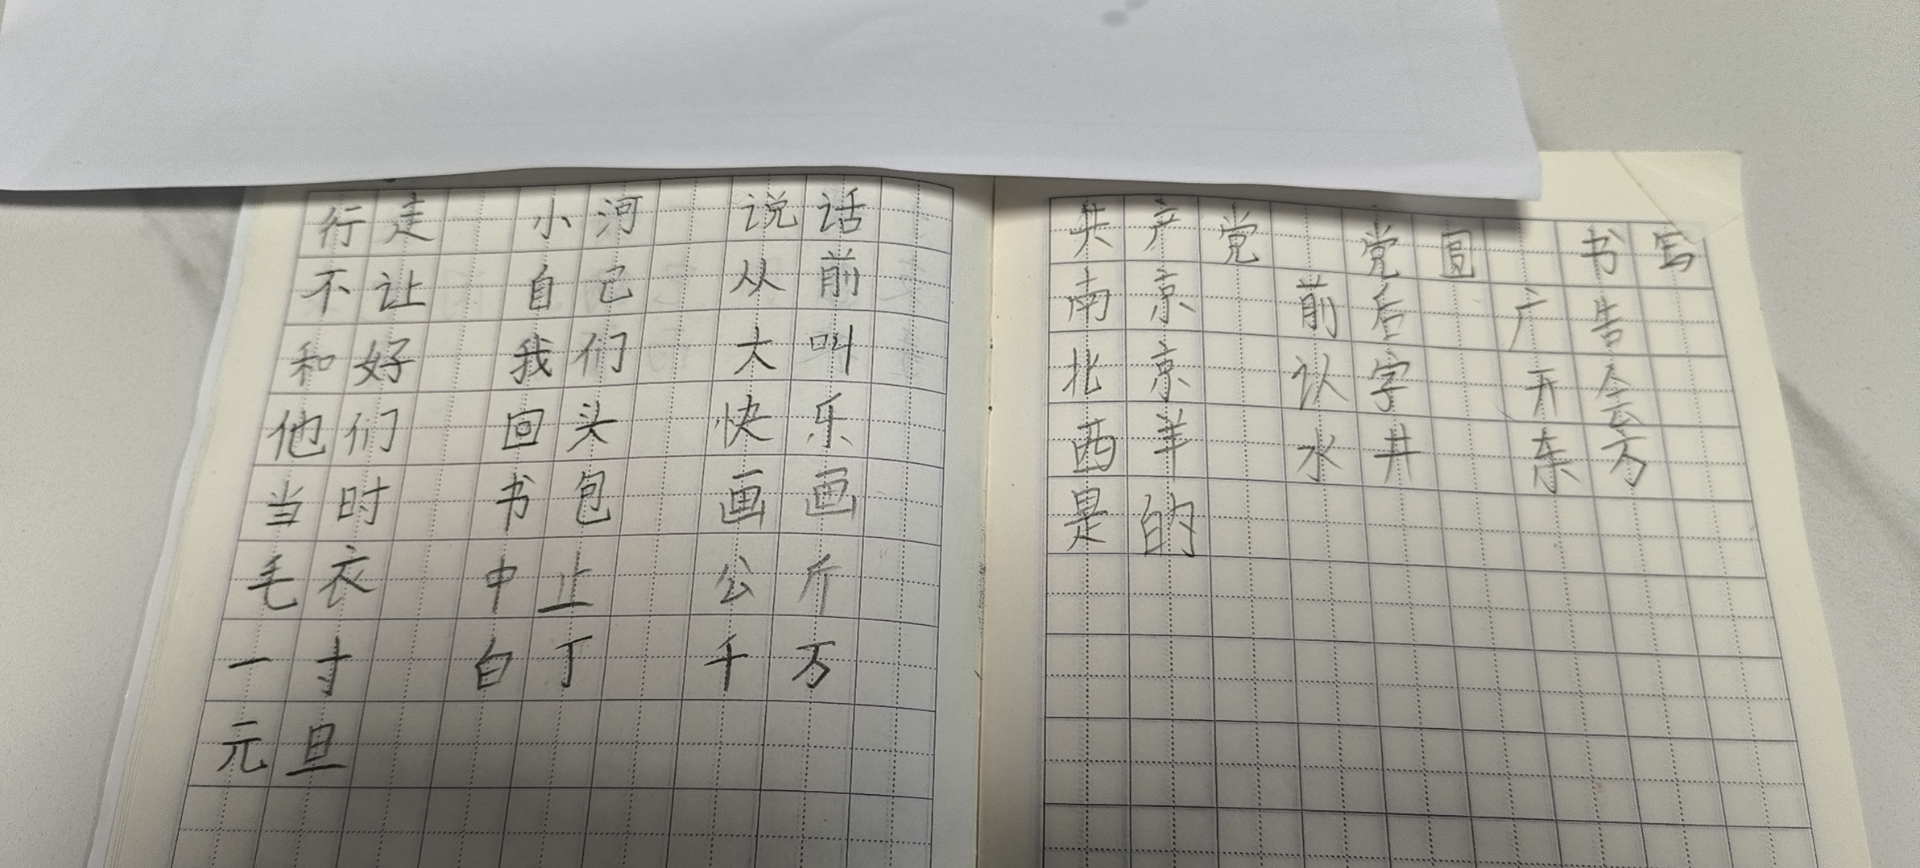 行走 小河 说话
不让 自己 从前
和好 我们 大叫
他们 回头 快乐
当时 书包 画画
毛衣 中止 公斤
一寸 白丁 千万
元旦
共产党 党圆 书写
南京 前后 广告
北京 认字 开会
西羊 水井 东方
是的